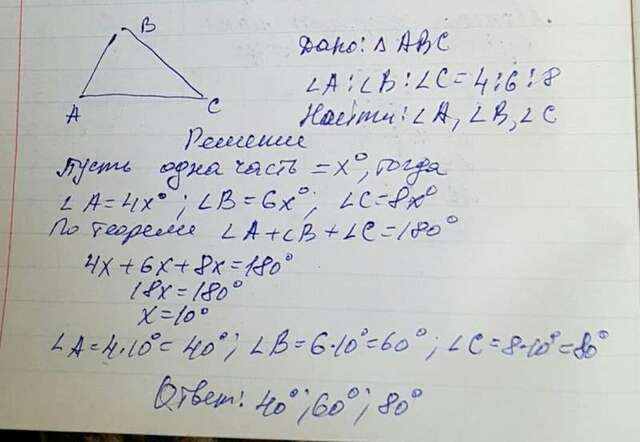 B
A
C
Дано: Δ ABC
∠A : ∠B : ∠C = 4 : 6 : 8
Найти: ∠A, ∠B, ∠C
Решение
Пусть одна часть = x°, тогда
∠A = 4x°; ∠B = 6x°; ∠C = 8x°
По теореме ∠A + ∠B + ∠C = 180°
4x + 6x + 8x = 180°
18x = 180°
x = 10°
∠A = 4·10° = 40°; ∠B = 6·10° = 60°; ∠C = 8·10° = 80°
Ответ: 40°; 60°; 80°